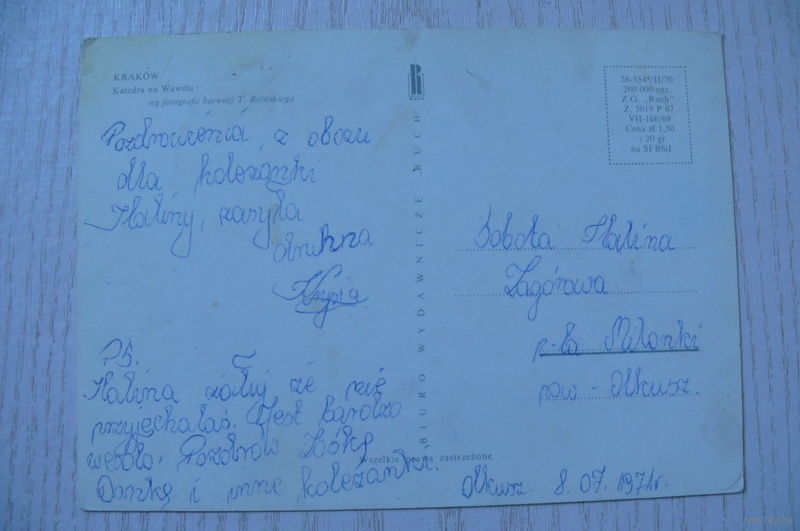 KRAKÓW
Katedra na Wawelu
wg fotografii barwnej T. Bilińskiego
Pozdrowienia, z obozu
dla koleżanki
Haliny, zasyła
druhna
Krysia
PS.
Halina żałuj że nie
przyjechałaś. Jest bardzo
wesoło. Pozdrów Zośkę
Dankę i inne koleżanki.
BIURO WYDAWNICZE RUCH
RUCH
Wszelkie prawa zastrzeżone
26-3545/II/70
200 000 egz.
Z.G. „Ruch"
Z. 5019 P 67
VII-166/69
Cena zł 1,50
+ 20 gr
na SFBSiI
Sobota Halina
Zagórowa
p-ta Milonki
pow - Olkusz.
Olkusz. 8.07.1971r.